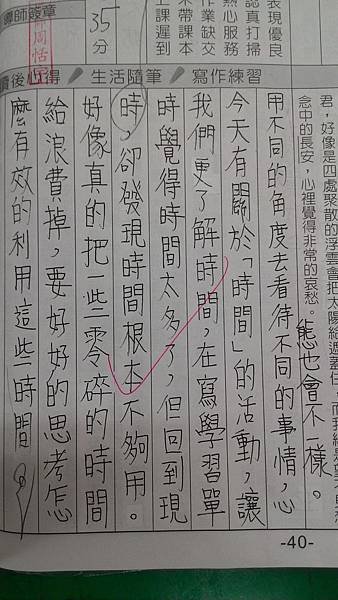 表現優良
認真打掃
熱心服務
作業缺交
未帶課本
上課遲到
35分
導師簽章
周恬
讀後心得／生活隨筆／寫作練習
君，好像是四處聚散的浮雲會把太陽給遮蓋住，而我總是
念中的長安，心裡覺得非常的哀愁。
用不同的角度去看待不同的事情，心
態也會不一樣。
今天有關於「時間」的活動，讓
我們更了解時間，在寫學習單
時覺得時間太多了，但回到現
時，卻發現時間根本不夠用。
好像真的把一些零碎的時間
給浪費掉，要好好的思考怎
麼有效的利用這些時間。
-40-